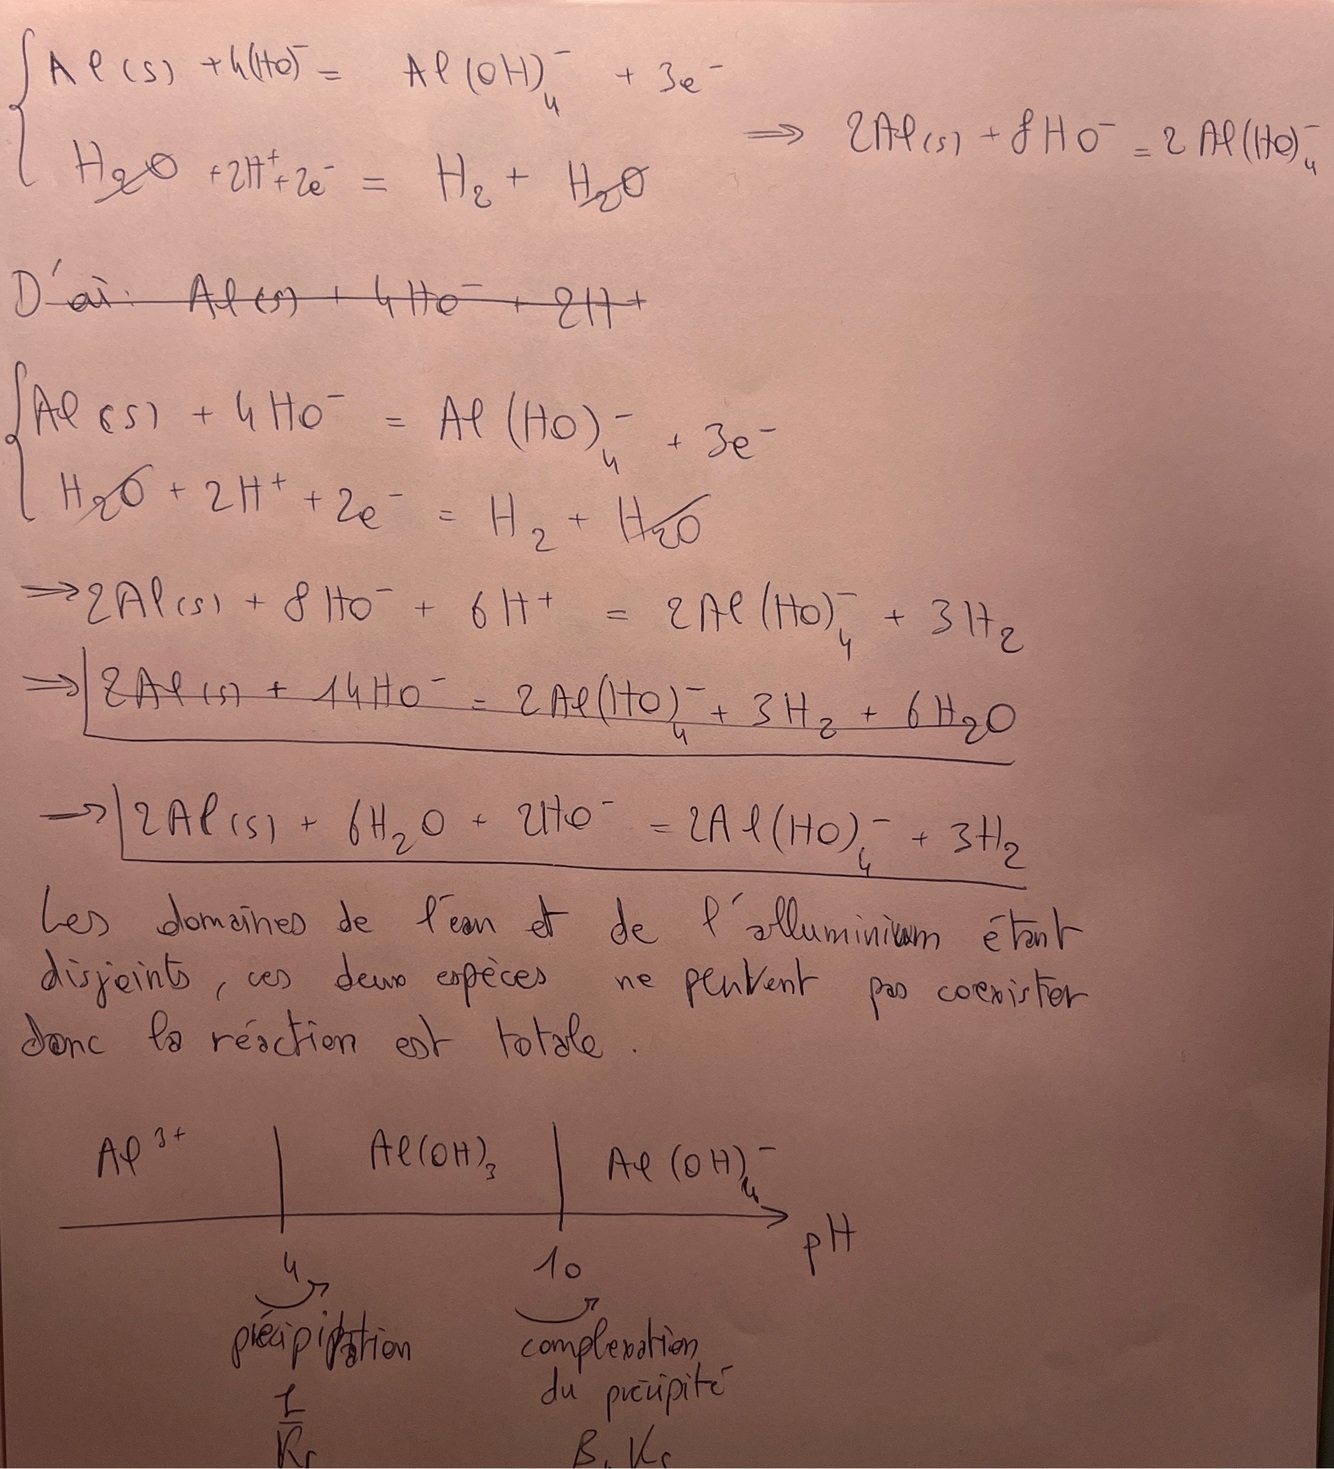 Al(s) + 4(HO)⁻ = Al(OH)₄⁻ + 3e⁻
H₂O + 2H⁺ + 2e⁻ = H₂ + H₂O
⇒ 2Al(s) + 8HO⁻ = 2Al(HO)₄⁻
D'où: Al(s) + 4HO⁻ + 2H⁺
Al(s) + 4HO⁻ = Al(HO)₄⁻ + 3e⁻
H₂O + 2H⁺ + 2e⁻ = H₂ + H₂O
⇒ 2Al(s) + 8HO⁻ + 6H⁺ = 2Al(HO)₄⁻ + 3H₂
⇒ 2Al(s) + 14HO⁻ = 2Al(HO)₄⁻ + 3H₂ + 6H₂O
→ 2Al(s) + 6H₂O + 2HO⁻ = 2Al(HO)₄⁻ + 3H₂
Les domaines de l'eau et de l'alluminium étant
disjoints, ces deux espèces ne peuvent pas coexister
donc la réaction est totale.
Al³⁺ Al(OH)₃ Al(OH)₄⁻
pH
4 10
précipitation complexation
du précipité
1